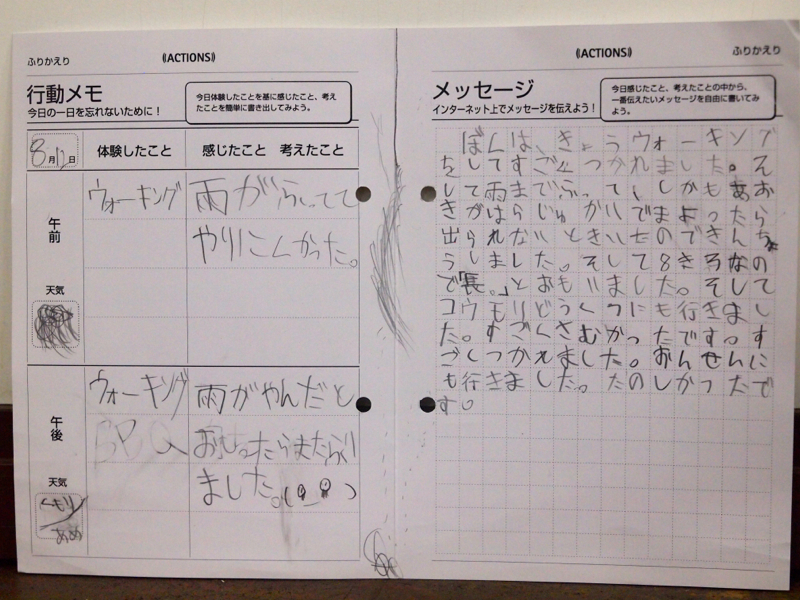 ふりかえり
《ACTIONS》
行動メモ
今日の一日を忘れないために！
今日体験したことを基に感じたこと、考え
たことを簡単に書き出してみよう。
8月12日
体験したこと
感じたこと 考えたこと
午前
天気
ウォーキング
雨がふってて
やりにくかった。
午後
天気
くもり
あめ
ウォーキング
雨がやんだと
おもったらまたふり
ました。
《ACTIONS》
ふりかえり
メッセージ
インターネット上でメッセージを伝えよう！
今日感じたこと、考えたことの中から、
一番伝えたいメッセージを自由に書いてみ
よう。
ぼくは、きょうウォーキング
をしてすごくつかれました。そ
して雨までふって、しかもあお
きがはらじゅかいでまよったら
出られないときいたのできんち
ょうしました。そして8きろなの
で「長。」とおもいました。そして
コウモリどうくつにも行きまし
た。すごくさむかったです。す
ごくつかれました。おんせんに
も行きました。たのしかったで
す。